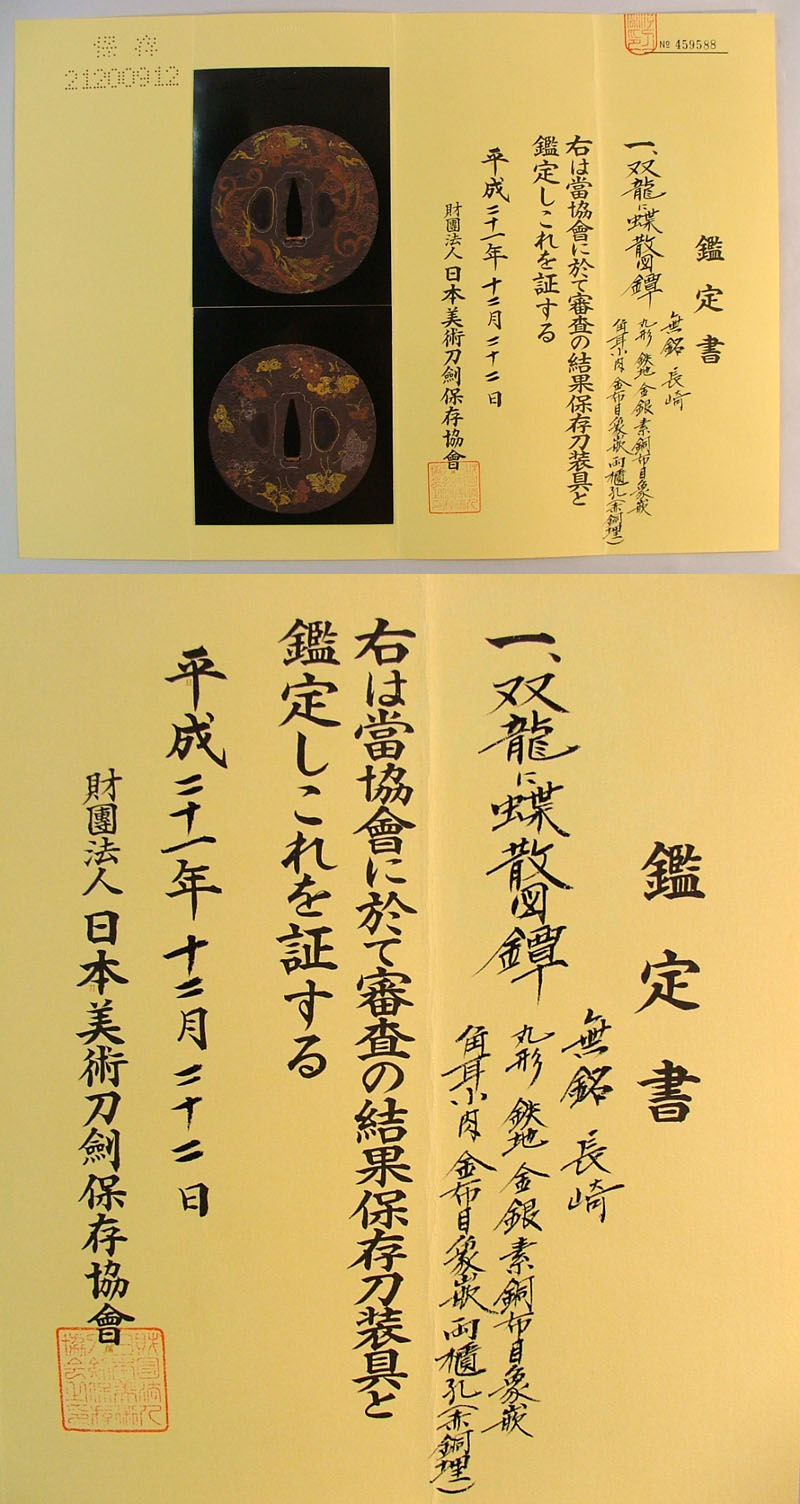 保存
21200912
№ 459588
鑑定書
一、双龍に蝶散図鐔
無銘 長崎
丸形 鉄地 金銀素銅布目象嵌
角耳小肉 金布目象嵌 両櫃孔(赤銅埋)
右は當協會に於て審査の結果保存刀装具と
鑑定しこれを証する
平成二十一年十二月二十二日
財團法人日本美術刀劍保存協會
鑑定書
一、双龍に蝶散図鐔
無銘 長崎
丸形 鉄地 金銀素銅布目象嵌
角耳小肉 金布目象嵌 両櫃孔(赤銅埋)
右は當協會に於て審査の結果保存刀装具と
鑑定しこれを証する
平成二十一年十二月二十二日
財團法人日本美術刀劍保存協會